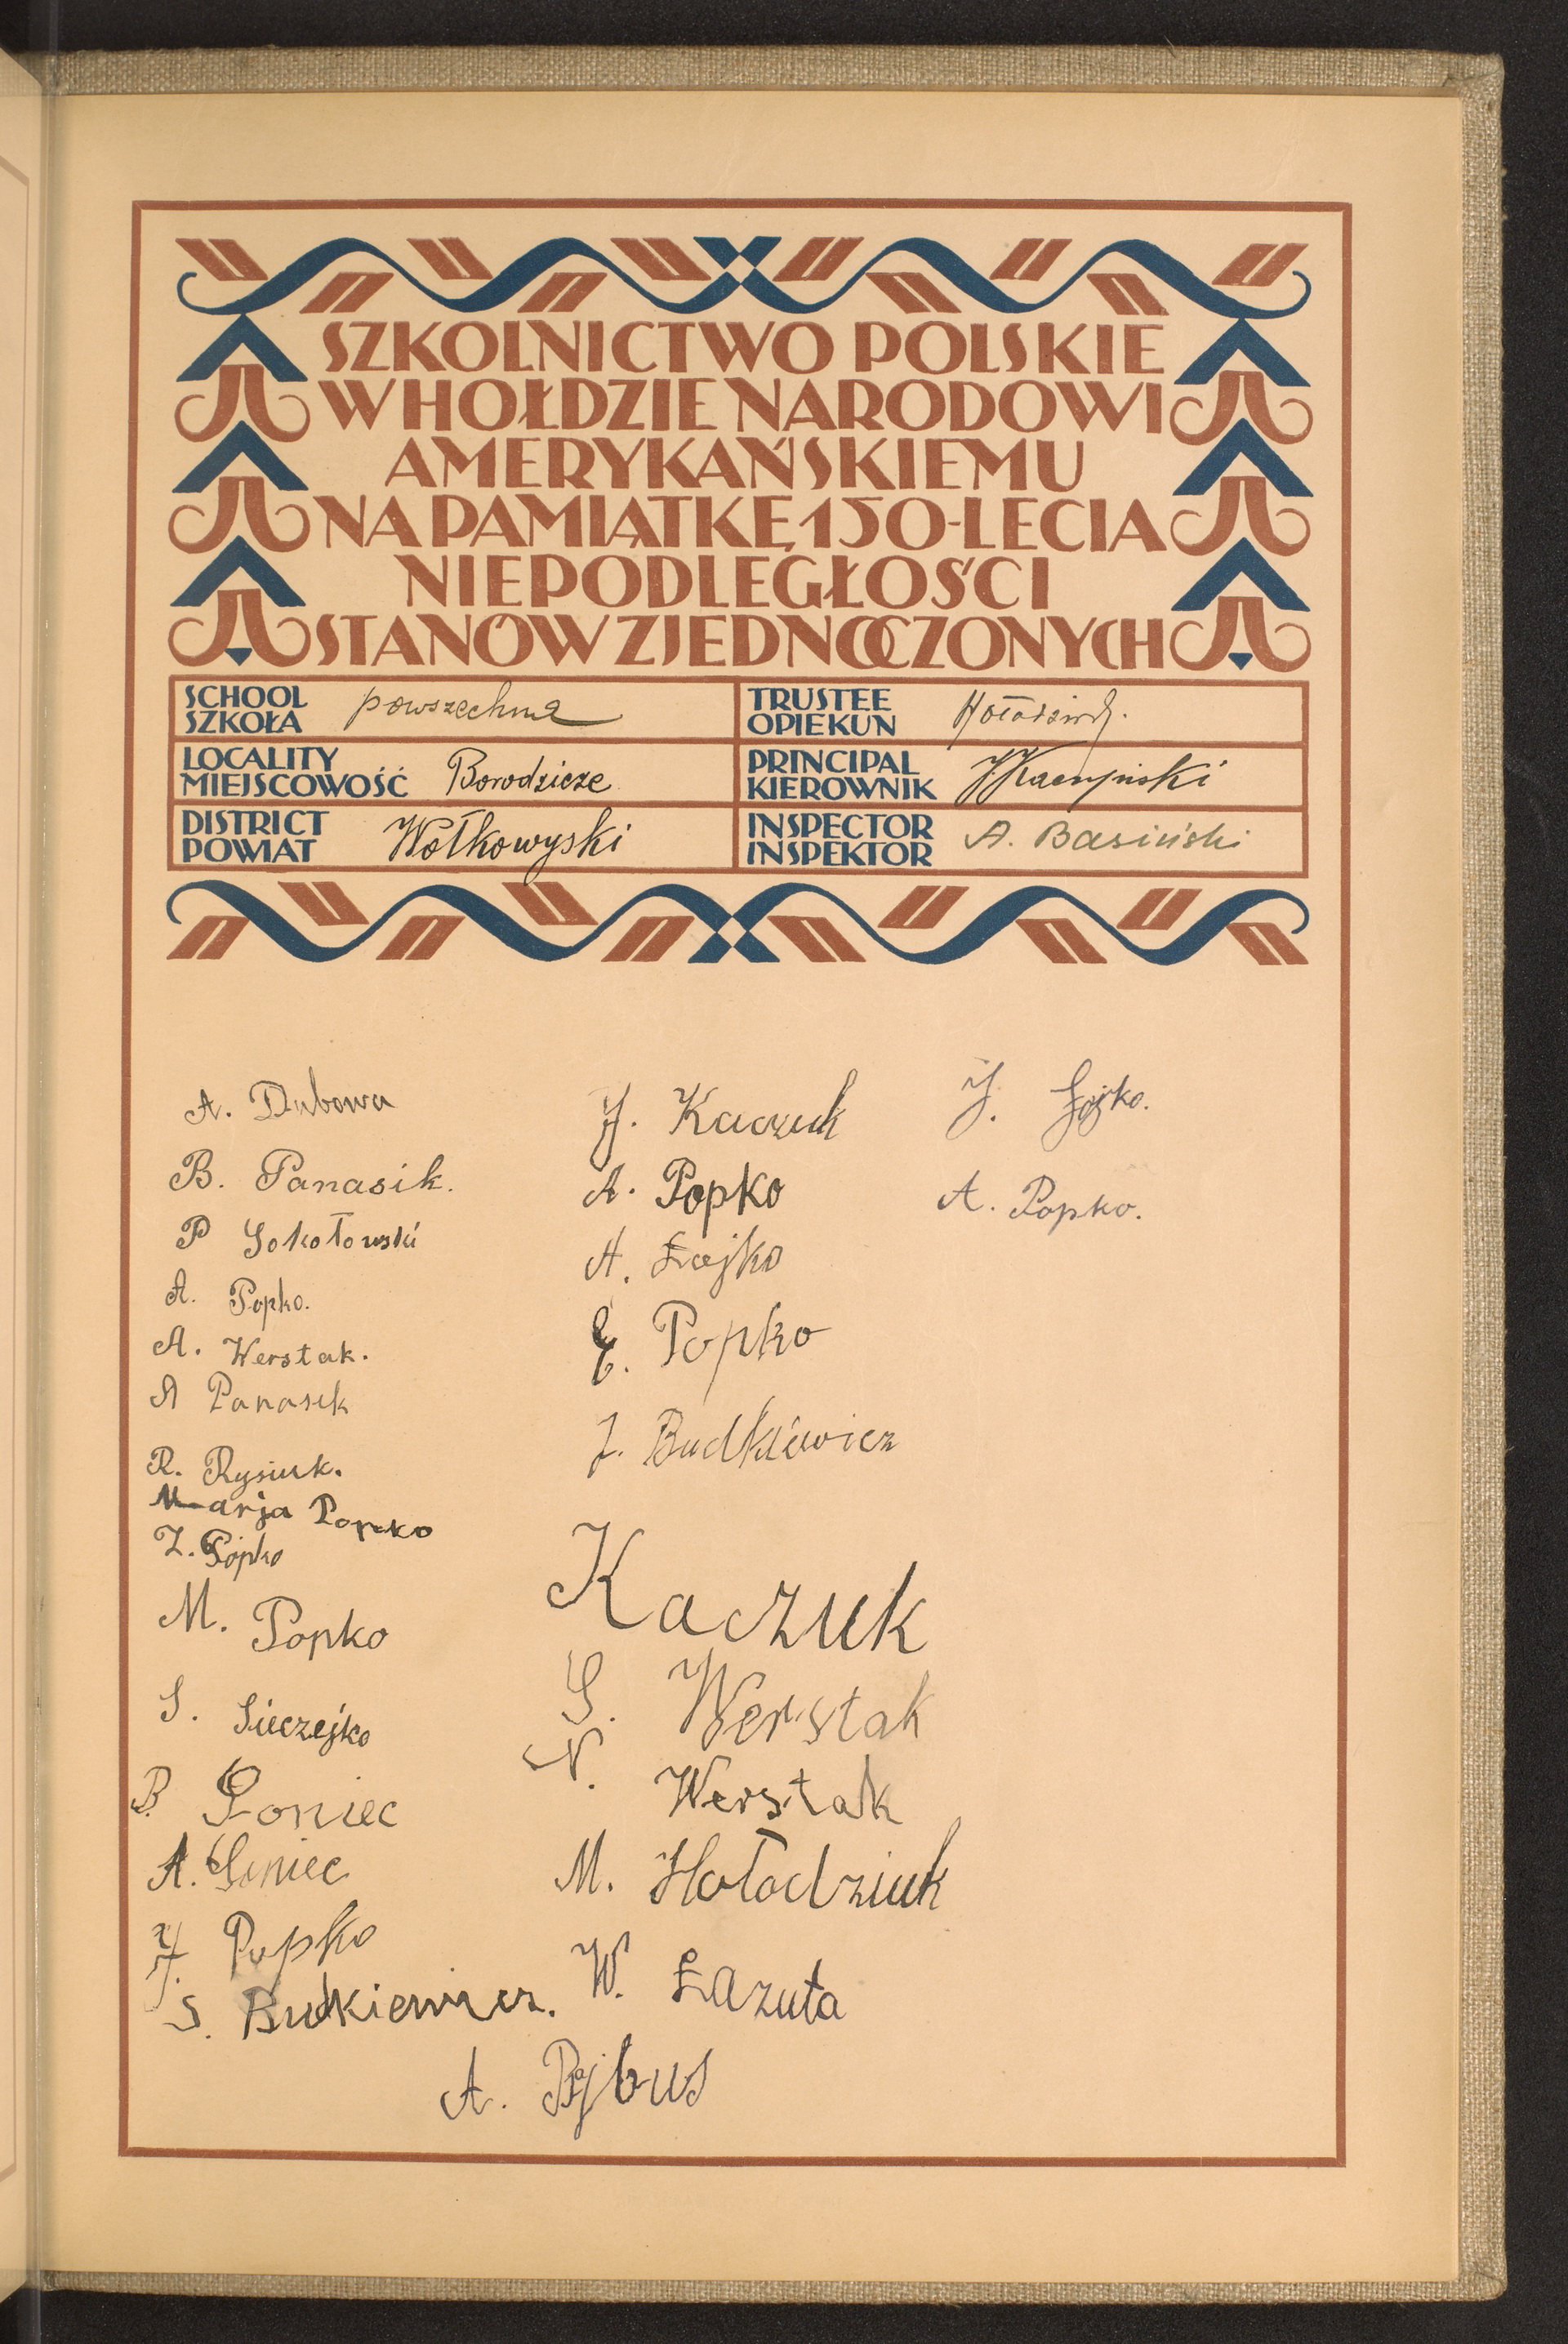 SZKOLNICTWO POLSKIE
W HOŁDZIE NARODOWI
AMERYKAŃSKIEMU
NA PAMIĄTKĘ 150-LECIA
NIEPODLEGŁOŚCI
STANÓW ZJEDNOCZONYCH
SCHOOL
SZKOŁA powszechna
TRUSTEE
OPIEKUN
LOCALITY
MIEJSCOWOŚĆ Borodzicze
PRINCIPAL
KIEROWNIK
DISTRICT
POWIAT Wołkowyski
INSPECTOR
INSPEKTOR A. Basiński
A. Dubowa
B. Panasik.
P Sokołowski
A. Popko.
A. Werstak.
A Panasik
R. Rysiuk.
Marja Popko
Z. Popko
M. Popko
S. Sieczejko
B. Poniec
A.
J. Popko
S. Budkiewicz.
J. Kaczuk
A. Popko
A. Łojko
E. Popko
J. Budkiewicz
Kaczuk
S. Werstak
N. Werstak
M. Hołodziuk
W. Łazuta
A.
J. Łojko.
A. Popko.